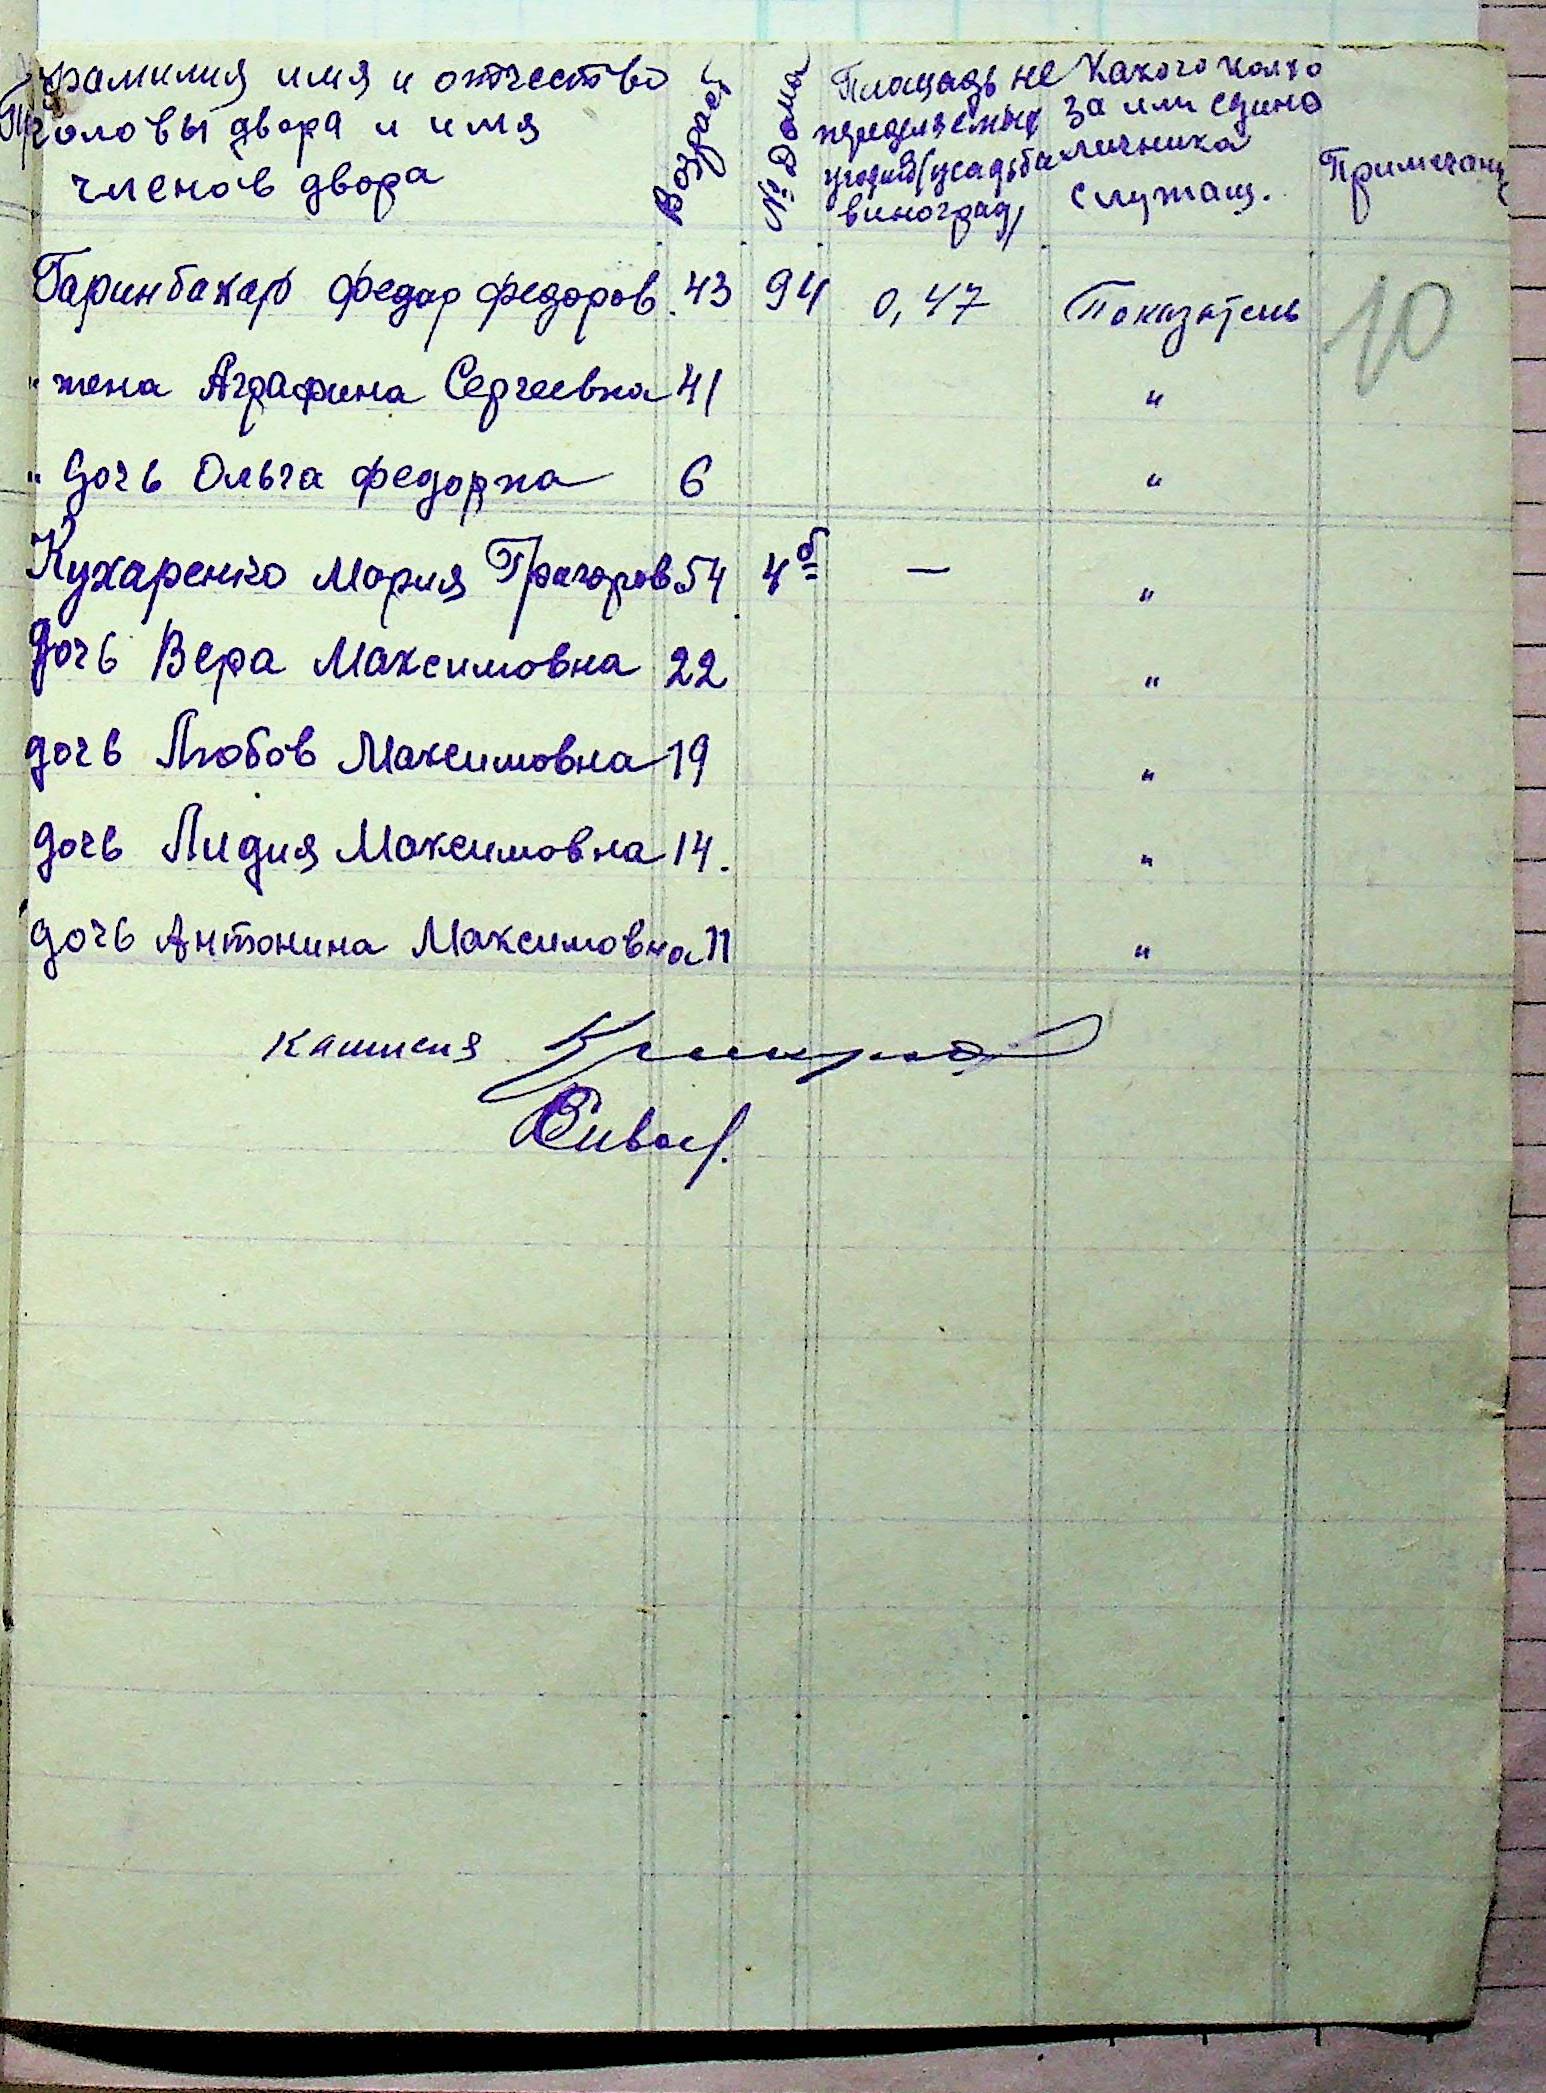 фамилия имя и отчество
головы двора и имя
членов двора
Возраст
№ Дома
Площадь не
переделяемых
угодий (усадьба
виноград)
Какого колхо
за или едино
личника
служащ.
Примечани
Гаринбахар Федар Федоров. 43 94 0,47 Показатель 10
" жена Аграфина Сергеевна 41 "
" дочь Ольга Федорна 6 "
Кухаренко Мария Григоров 54 4б — "
дочь Вера Максимовна 22 "
дочь Любов Максимовна 19 "
дочь Лидия Максимовна 14. "
дочь Антонина Максимовна 11 "